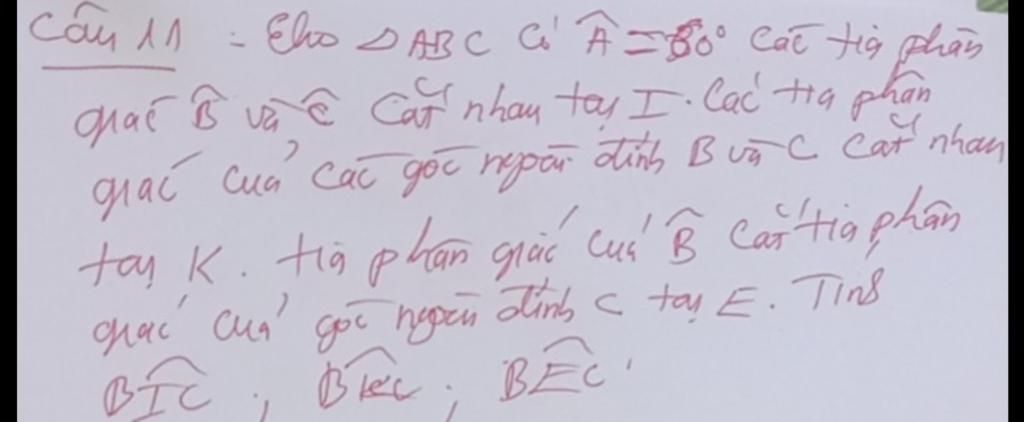 Câu 11 - Cho △ABC có Â = 80° Các tia phân
giác B̂ và Ĉ cắt nhau tại I. Các tia phân
giác của các góc ngoài đỉnh B và C cắt nhau
tại K. tia phân giác của B̂ cắt tia phân
giác của góc ngoài đỉnh C tại E. Tính
BÎC ; BK̂C ; BÊC